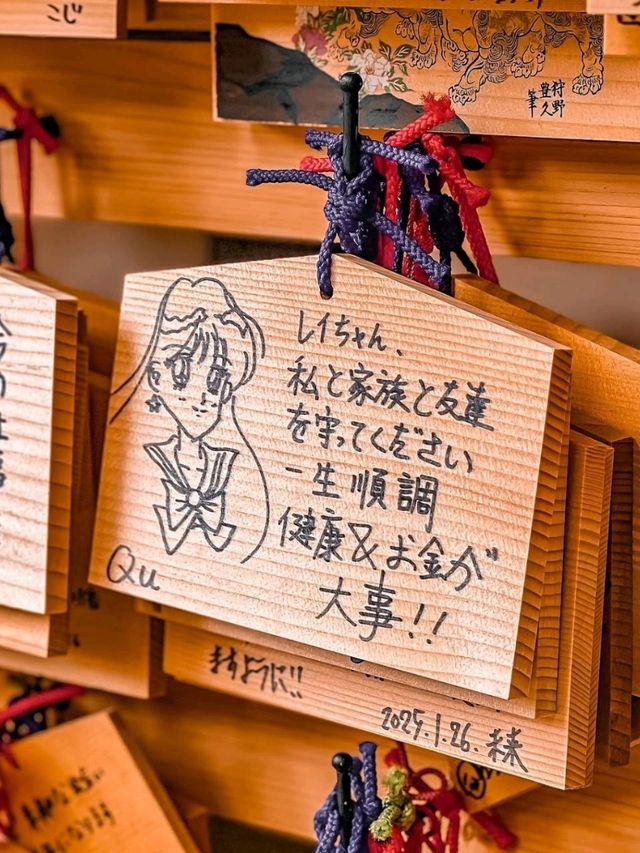 こじ
狩野
豊久
筆
レイちゃん、
私と家族と友達
を守ってください
一生順調
健康&お金が
大事!!
Qu
ますように!!
2025.1.26.